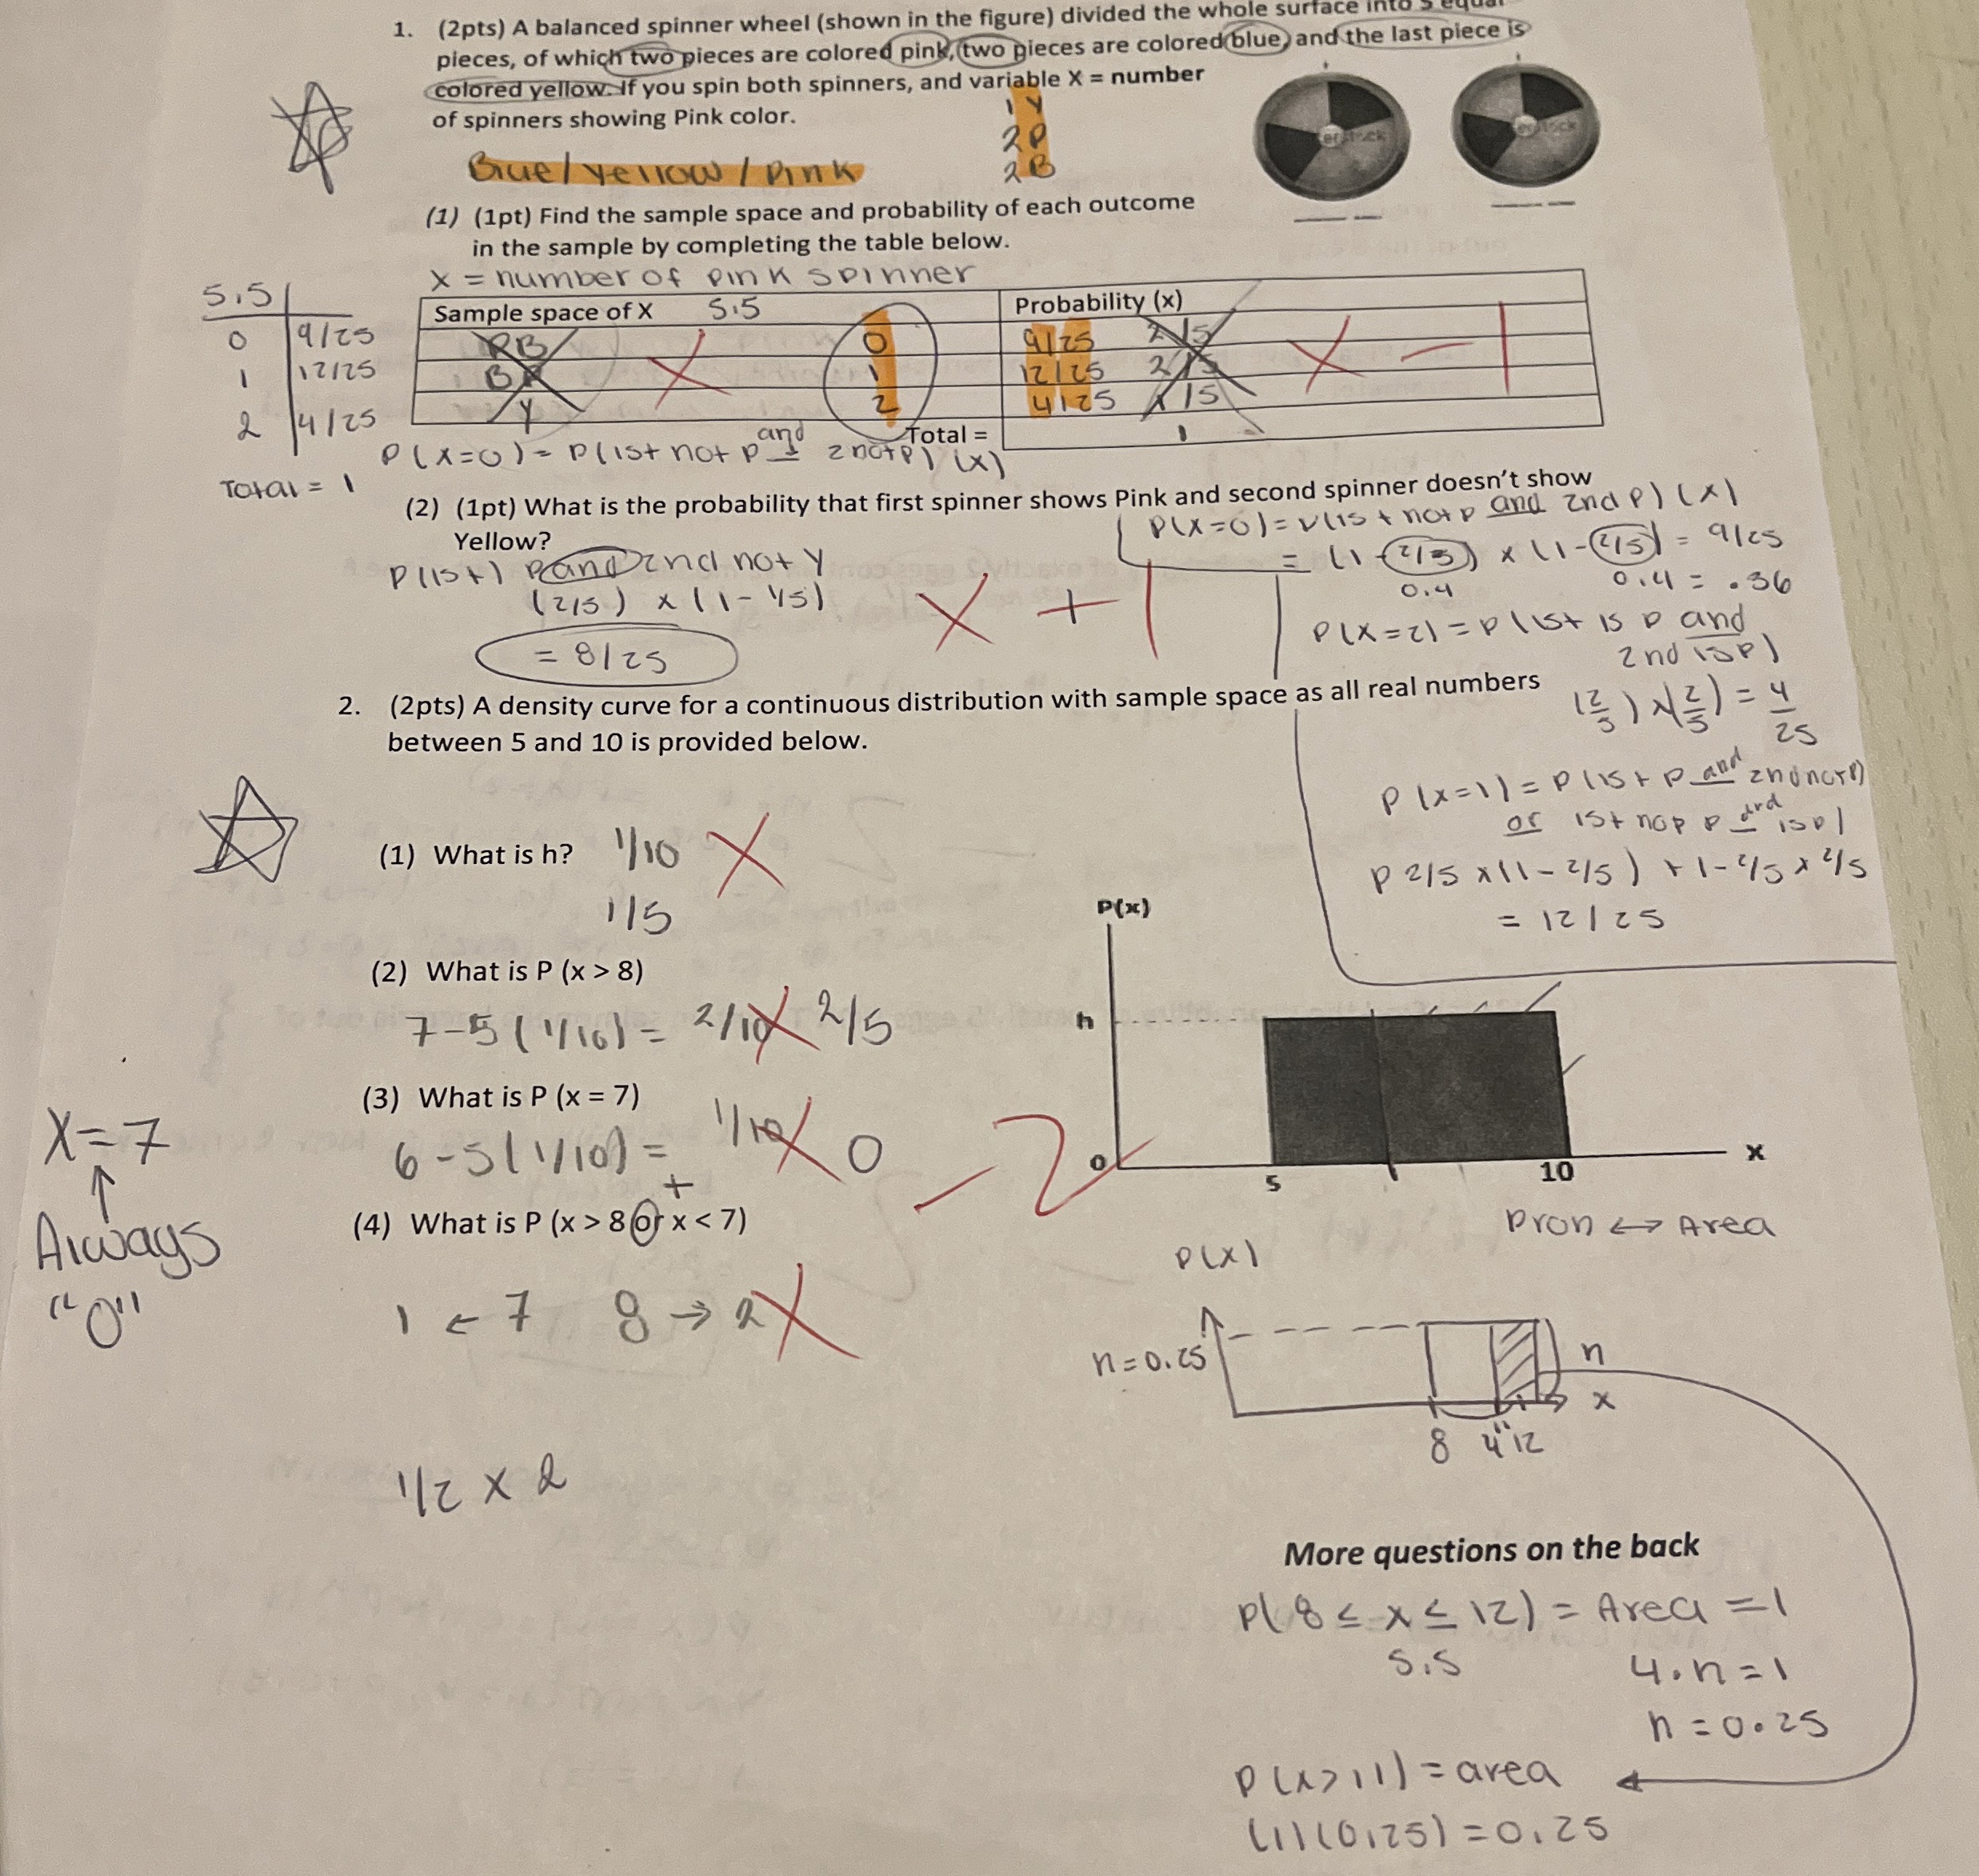 1. (2pts) A balanced spinner wheel (shown in the figure) divided the whole surface into 5 equal
pieces, of which two pieces are colored pink, two pieces are colored blue, and the last piece is
colored yellow. If you spin both spinners, and variable X = number
of spinners showing Pink color.
1 Y
2 P
2 B
Blue / Yellow / Pink
(1) (1pt) Find the sample space and probability of each outcome
in the sample by completing the table below.
X = number of pink spinner
S.S
0 9/25
1 12/25
2 4/25
Total = 1
Sample space of X S.S Probability (x)
PB 0 9/25 2/5
1 12/25 2/5
Y 2 4/25 1/5
Total = 1
X - 1
P(X=0) = P(1st not P and 2 not P) (X)
(2) (1pt) What is the probability that first spinner shows Pink and second spinner doesn't show
Yellow?
P(1st) P and 2nd not Y
(2/5) x (1 - 1/5)
= 8/25
X + 1
P(X=0) = P(1st not P and 2nd P) (X)
= (1 - 2/5) x (1 - 2/5) = 9/25
0.4 0.4 = .36
P(X=2) = P(1st is P and
2nd is P)
(2/5) x (2/5) = 4/25
P(X=1) = P(1st P and 2nd not P)
or 1st nop P and is P)
P 2/5 x (1 - 2/5) + 1 - 2/5 x 2/5
= 12/25
2. (2pts) A density curve for a continuous distribution with sample space as all real numbers
between 5 and 10 is provided below.
(1) What is h? 1/10 X
1/5
(2) What is P (x > 8)
7-5 (1/10) = 2/10 X 2/5
(3) What is P (x = 7)
6-5 (1/10) = 1/10 X 0
- 2
(4) What is P (x > 8 or x < 7)
+
1 ← 7 8 → 2 X
X = 7
↑
Always
"0"
1/2 x 2
P(x)
h
0
5
10
x
Prob ↔ Area
P(X)
h = 0.25
h
x
8 4 12
More questions on the back
P(8 ≤ x ≤ 12) = Area = 1
S.S
4.h = 1
h = 0.25
P(x > 11) = area
(1)(0.25) = 0.25